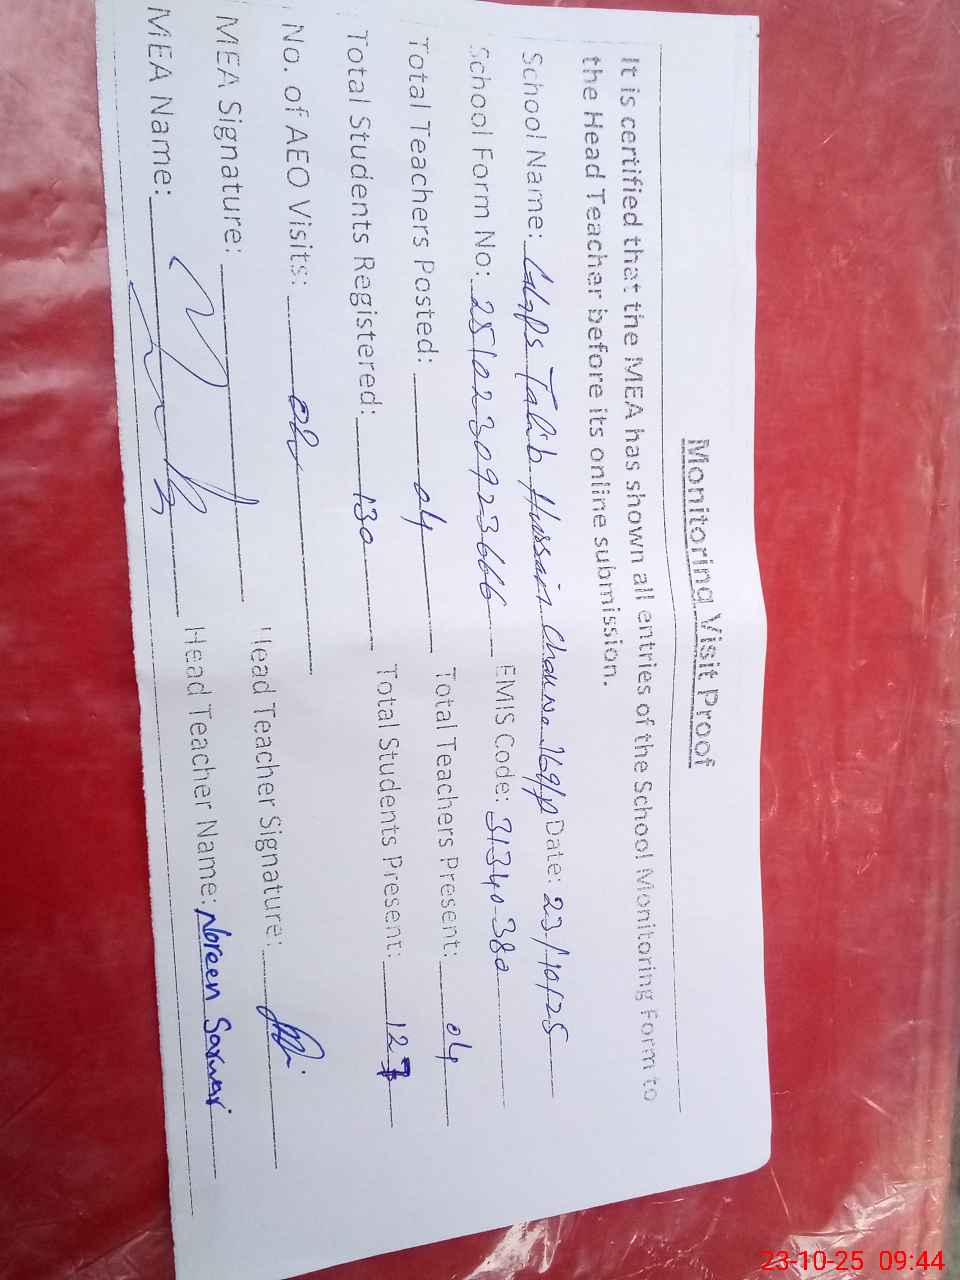 Monitoring Visit Proof
It is certified that the MEA has shown all entries of the School Monitoring Form to
the Head Teacher before its online submission.
School Name: Ggps Talib Hussain Chak No. 169/p Date: 23/10/25
School Form No: 2510230923666 EMIS Code: 31340380
Total Teachers Posted: 04 Total Teachers Present: 04
Total Students Registered: 130 Total Students Present: 127
No. of AEO Visits:
MEA Signature: Head Teacher Signature:
MEA Name: Head Teacher Name: Noreen Sarwar
23-10-25 09:44